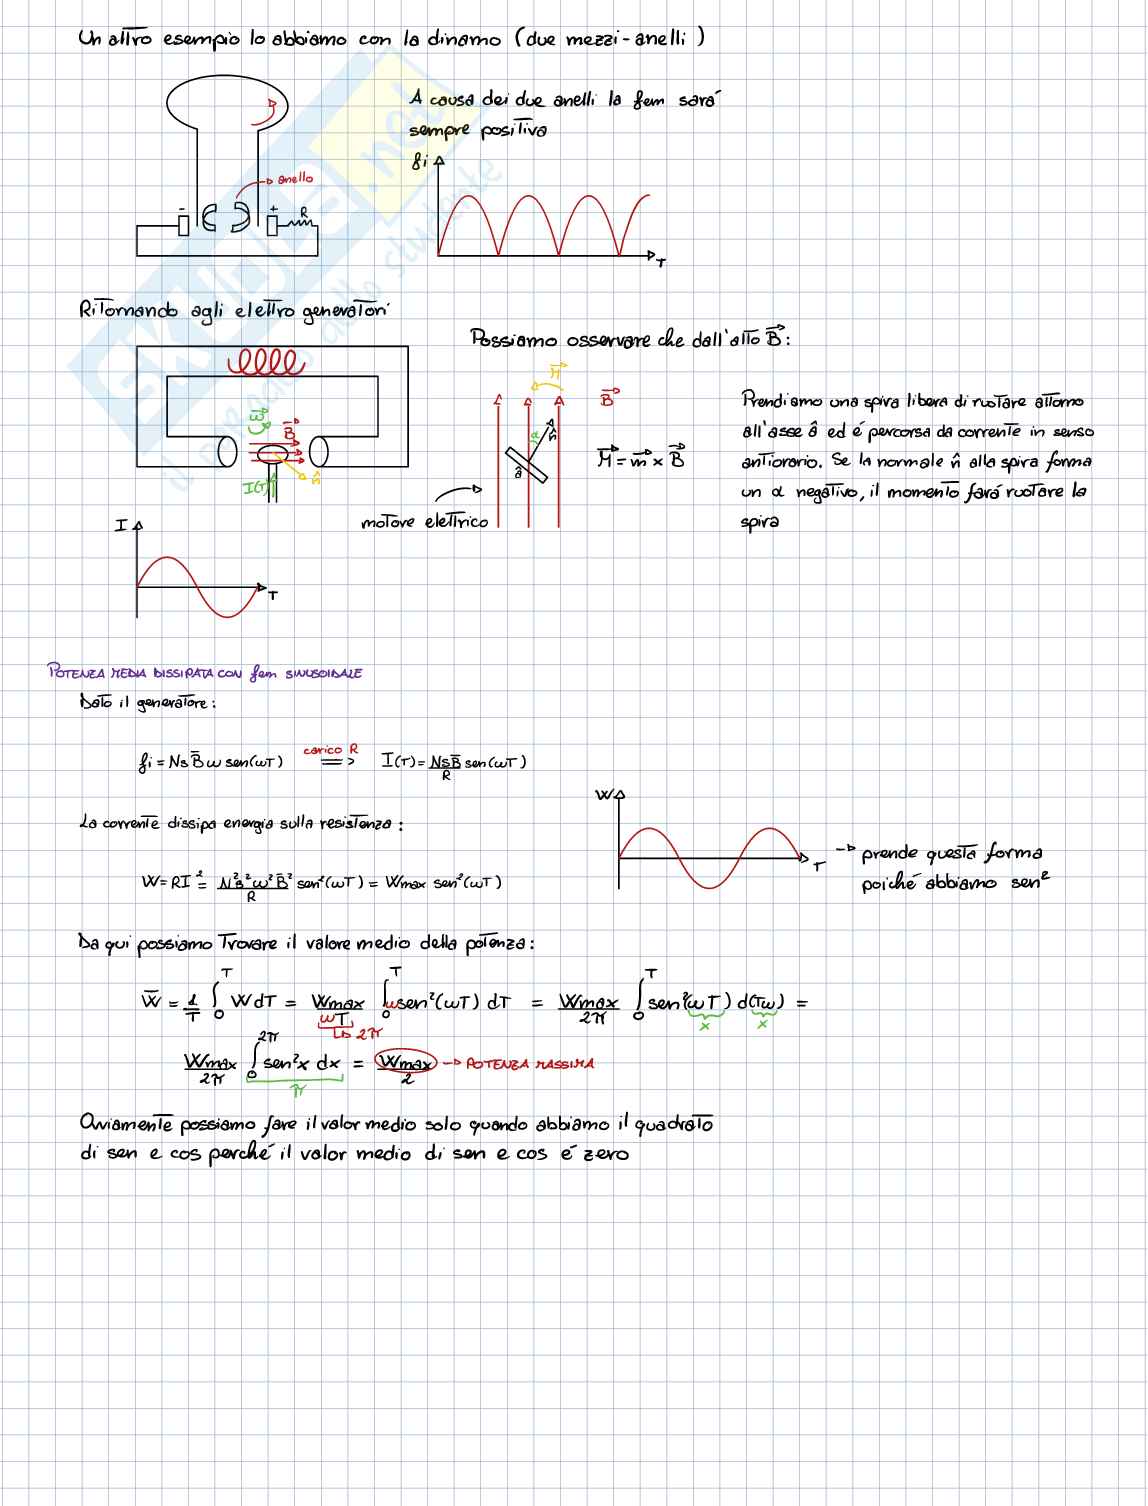 Un altro esempio lo abbiamo con la dinamo (due mezzi-anelli)
A causa dei due anelli la fem sará
sempre positiva
fi
anello
- + R
T
Ritornando agli elettro generatori
Possiamo osservare che dall'alto B⃗:
M⃗
B⃗
Prendiamo una spira libera di ruotare attorno
all'asse â ed é percorsa da corrente in senso
antiorario. Se la normale n̂ alla spira forma
un α negativo, il momento fará ruotare la
spira
ω⃗
B⃗
n̂
I(T)
α
n̂
â
M⃗ = m⃗ × B⃗
motore elettrico
I
T
POTENZA MEDIA DISSIPATA CON fem SINUSOIDALE
Dato il generatore:
fi = NsB̄ω sen(ωT) carico R => I(T) = NsB̄/R sen(ωT)
La corrente dissipa energia sulla resistenza:
W
T
-> prende questa forma
poiché abbiamo sen²
W = RI² = N²s²ω²B̄²/R sen²(ωT) = Wmax sen²(ωT)
Da qui possiamo trovare il valore medio della potenza:
W̄ = 1/T ∫₀ᵀ W dT = Wmax/ωT ∫₀ᵀ ωsen²(ωT) dT = Wmax/2π ∫₀ᵀ sen²(ωT) d(Tω) =
↳ 2π
x x
Wmax/2π ∫₀^2π sen²x dx = Wmax/2 -> POTENZA MASSIMA
π
Ovviamente possiamo fare il valor medio solo quando abbiamo il quadrato
di sen e cos perché il valor medio di sen e cos é zero
SKUOLA.net